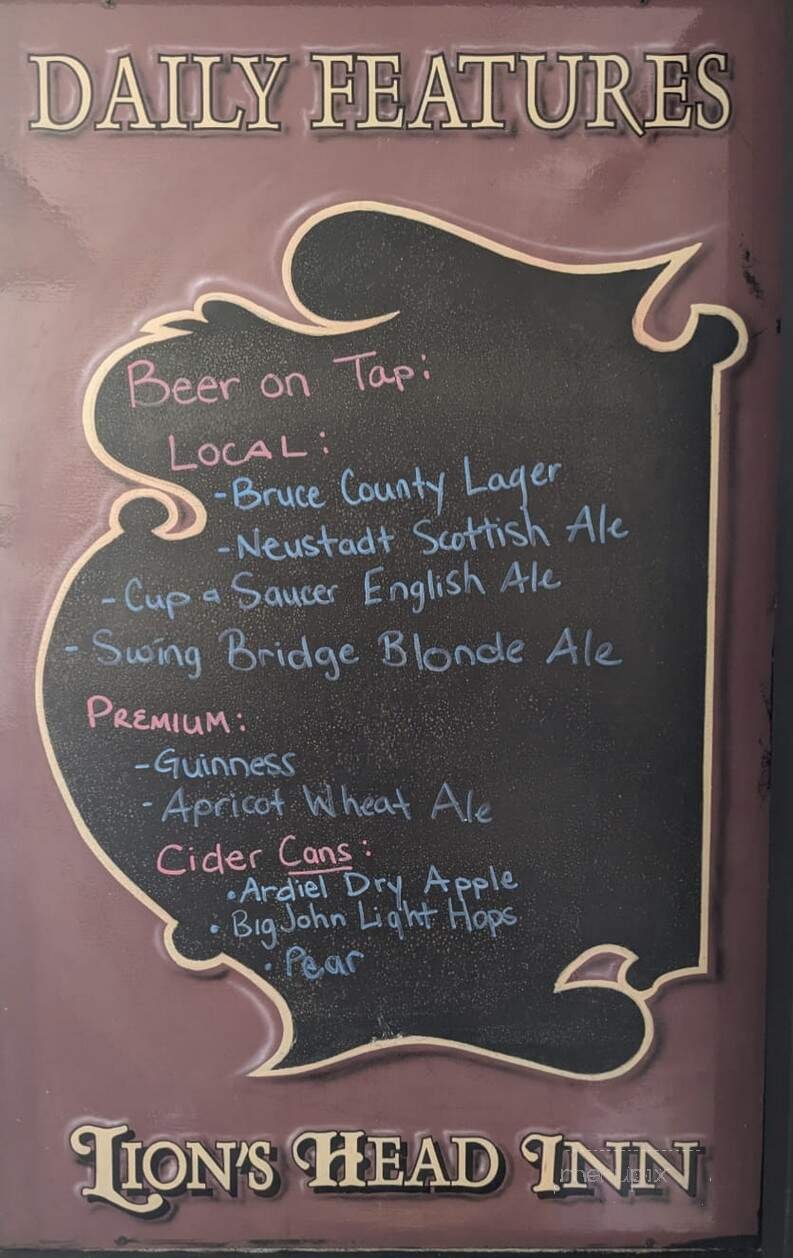 DAILY FEATURES
Beer on Tap:
LOCAL:
-Bruce County Lager
-Neustadt Scottish Ale
-Cup a Saucer English Ale
-Swing Bridge Blonde Ale
PREMIUM:
-Guinness
-Apricot Wheat Ale
Cider Cans:
•Ardiel Dry Apple
•Big John Light Hops
•Pear
LION'S HEAD INN
menupix